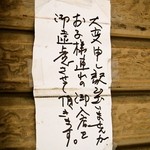 大変申し訳ございますが
お子様連れの御入店を
御遠慮させて頂きます。